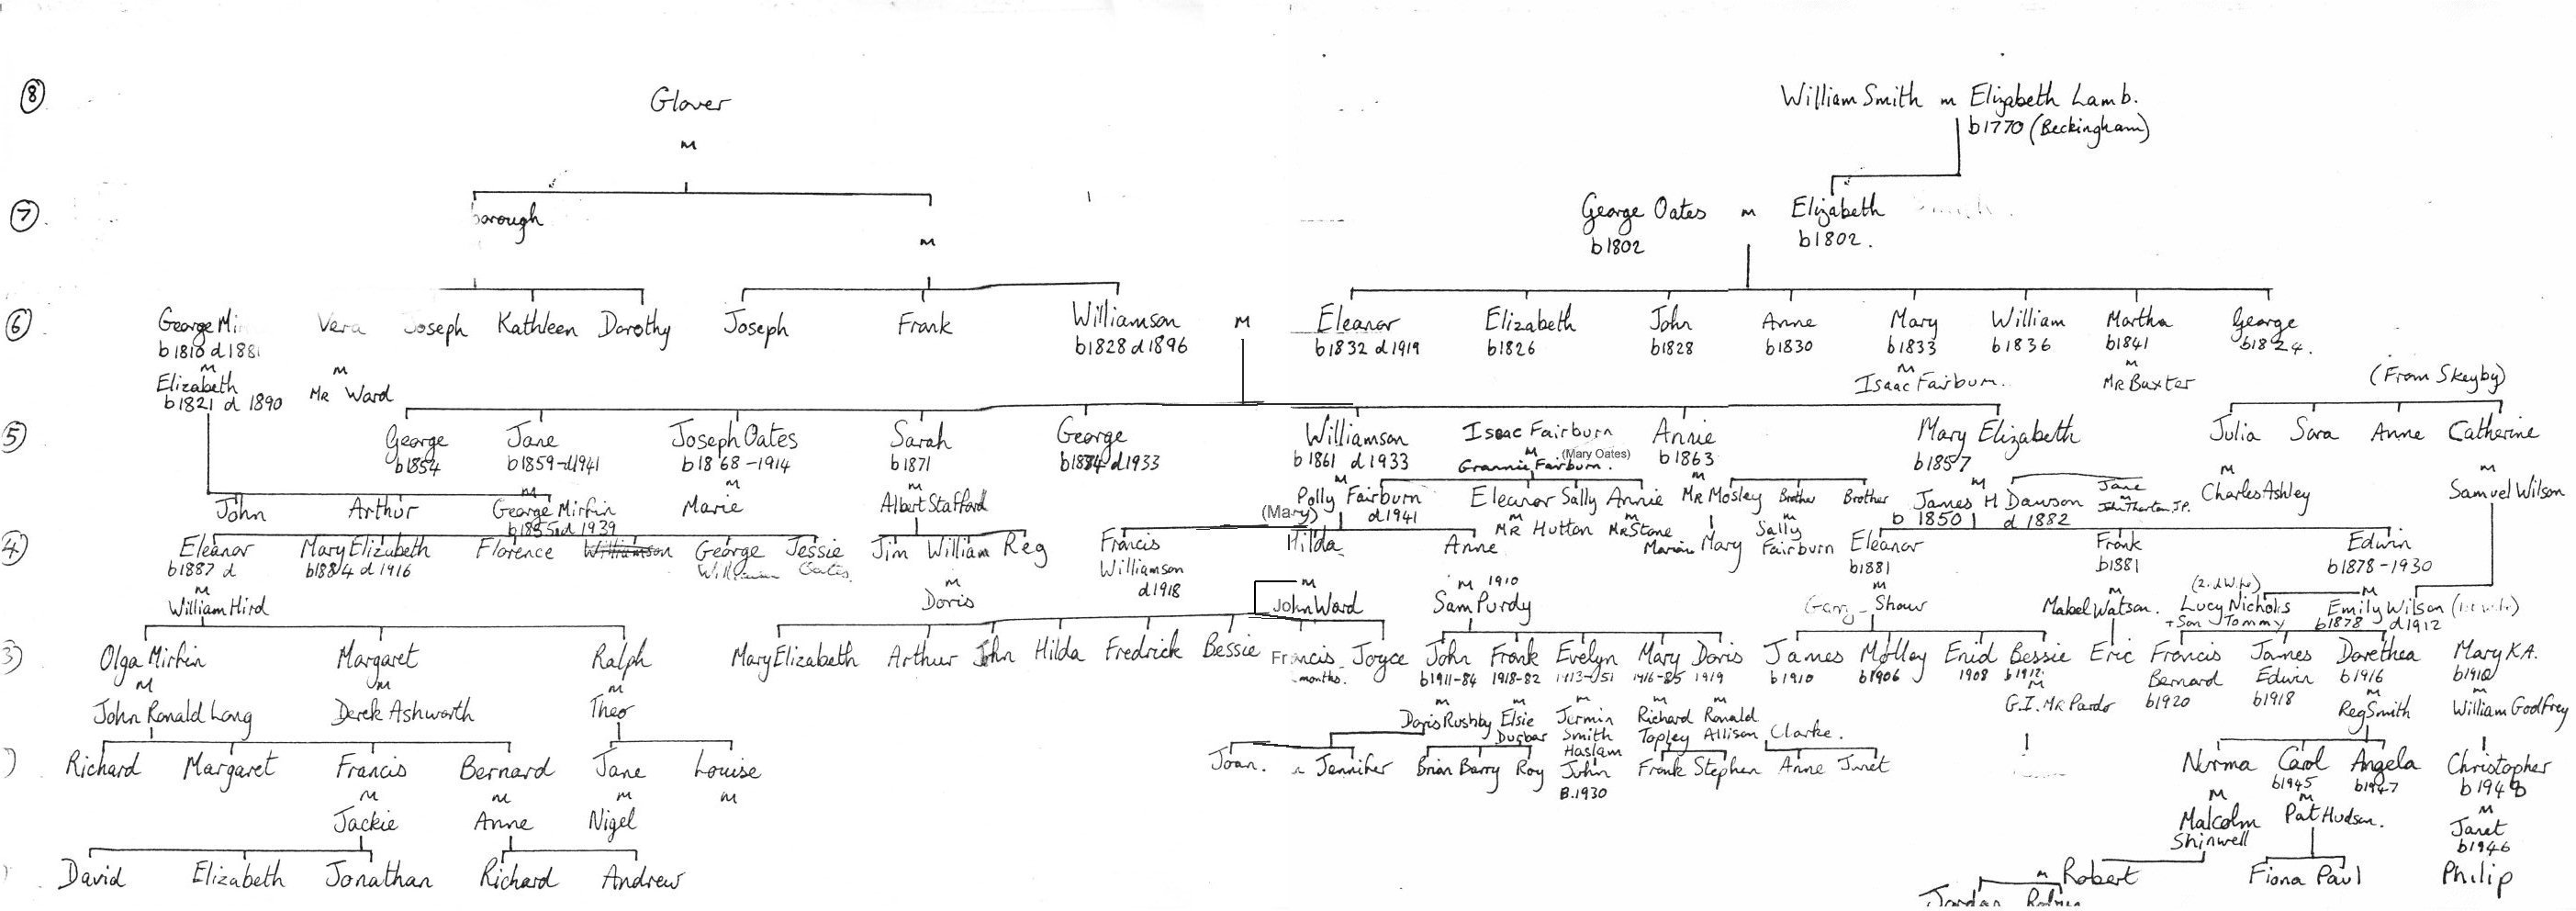 ⑧ Glover William Smith m Elizabeth Lamb.
b1770 (Beckingham)
m
⑦ borough George Oates m Elizabeth
b1802 b1802.
m
⑥ George Vera Joseph Kathleen Dorothy Joseph Frank Williamson m Eleanor Elizabeth John Anne Mary William Martha George
b1810 d188 b1828 d1896 b1832 d1919 b1826 b1828 b1830 b1833 b1836 b1841 b1824.
m m m m
Elizabeth Mr Ward Isaac Fairburn. Mr Baxter (From Skegby)
b1821 d 1890
⑤ George Jane Joseph Oates Sarah George Williamson Isaac Fairburn Annie Mary Elizabeth Julia Sara Anne Catherine
b1854 b1859-d1941 b1868-1914 b1871 d1933 b1861 d1933 m (Mary Oates) b1863 b1857
Grannie Fairburn.
m m m m m m m m
John Arthur George Mirfin Marie Albert Stafford Polly Fairburn Eleanor Sally Annie Mr Mosley Brother Brother James H Dawson Jane Charles Ashley Samuel Wilson
b1855 d 1939 (Mary) d1941 m m m b 1850 d 1882 m
Mr Hutton Mr Stone Sally
④ Eleanor Mary Elizabeth Florence Williamson George Jessie Jim William Reg Francis Hilda Anne Marian Mary Fairburn Eleanor Frank Edwin
b1887 d b1884 d1916 William Oates Williamson b1881 b1881 b1878-1930
m m d1918 m m 1910 m m (2nd Wife) m
William Hird Doris John Ward Sam Purdy Shaw Mabel Watson. Lucy Nichols Emily Wilson (1st wife)
+Son Tommy b1878 d1912
3) Olga Mirfin Margaret Ralph Mary Elizabeth Arthur John Hilda Fredrick Bessie Francis Joyce John Frank Evelyn Mary Doris James Molley Enid Bessie Eric Francis James Dorethea Mary K.A.
months. b1911-84 1918-82 1913-51 1916-85 1919 b1910 b1906 1908 b1912 Bernard Edwin b1916 b1910
b1920 b1918
m m m m m m m m m m m
John Ronald Long Derek Ashworth Theo Doris Rushby Elsie Jermin Richard Ronald Clarke. G.I. Mr Pardo Reg Smith William Godfrey
Dugbar Smith Topley Allison
Haslam
) Richard Margaret Francis Bernard Jane Louise Joan. Jennifer Brian Barry Roy John Frank Stephen Anne Janet Norma Carol Angela Christopher
B.1930 b1945 b1947 b1948
m m m m m m m
Jackie Anne Nigel Malcolm Pat Hudson. Janet
Shinwell b1946
) David Elizabeth Jonathan Richard Andrew m Robert Fiona Paul Philip
Jordan